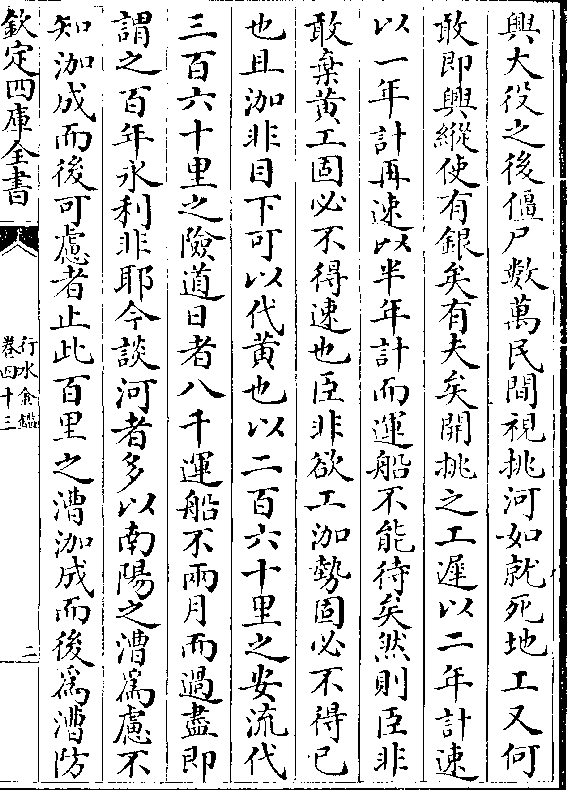 興大役之後僵尸數萬民間視挑河如就死地工又何
敢即興縱使有銀矣有夫矣開挑之工遲以二年計速
以一年計再速以半年計而運船不能待矣然則臣非
敢棄黃工固必不得速也臣非欲工泇勢固必不得已
也且泇非目下可以代黃也以二百六十里之安流代
三百六十里之險道日者八千運船不兩月而過盡即
謂之百年永利非耶今談河者多以南陽之漕爲慮不
知泇成而後可慮者止此百里之漕泇成而後爲漕防
欽定四庫全書
行水金鑑
卷四十三
二